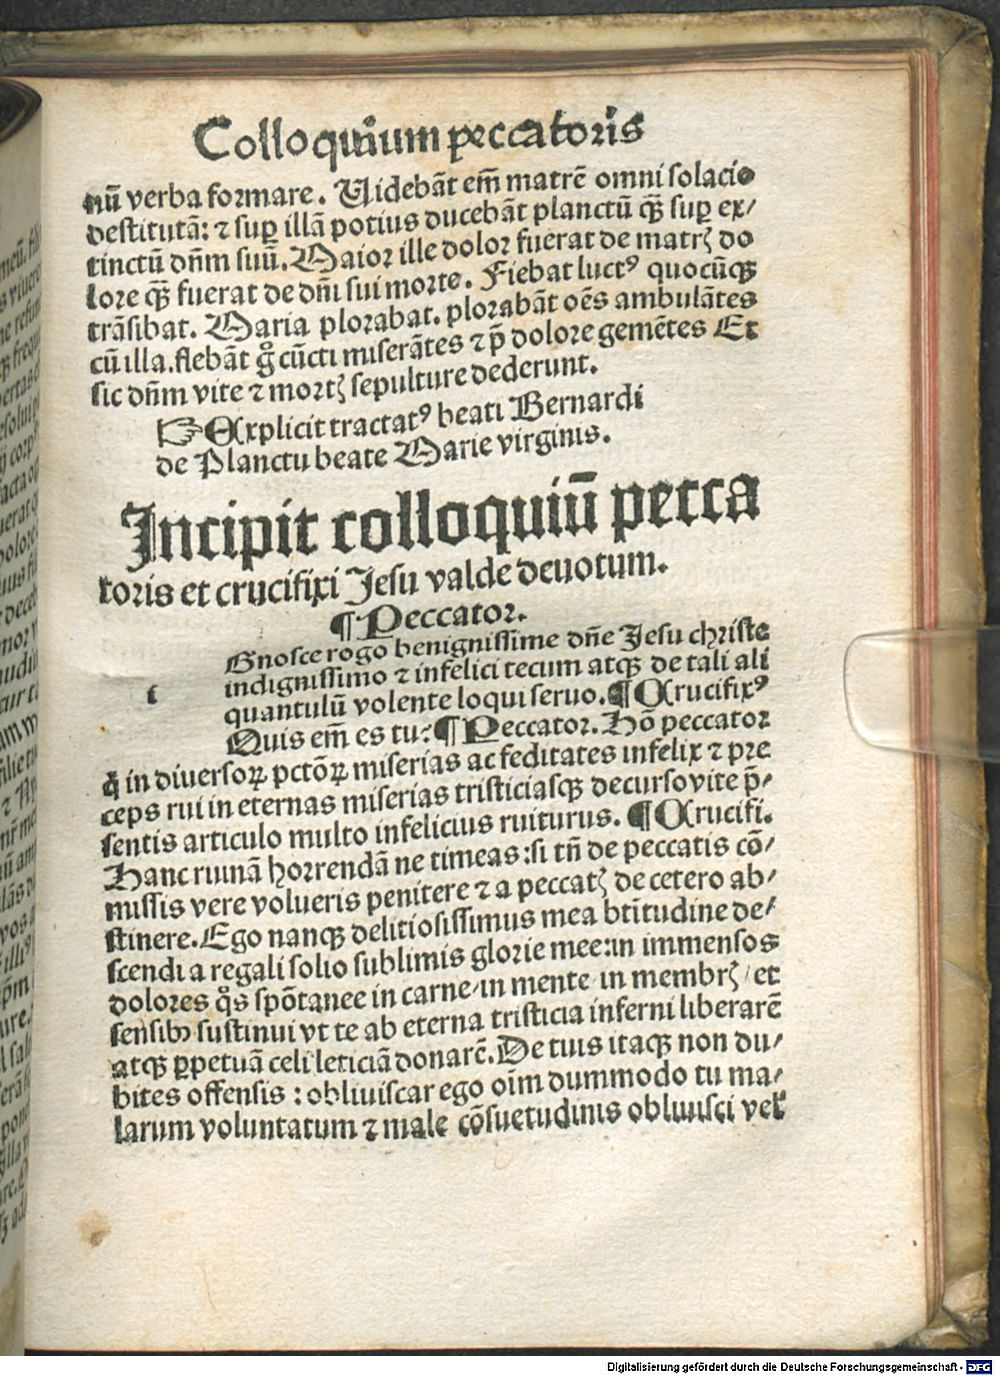 Colloquium peccatoris
nū verba formare. Uidebāt em̄ matrē omni solacio
destitutā: ⁊ suꝑ illā potius ducebāt planctū qꝫ suꝑ ex/
tinctū dn̄m suū. Maior ille dolor fuerat de matrꝭ do
lore qꝫ fuerat de dn̄i sui morte. Fiebat luctꝰ quocūqꝫ
trāsibat. Maria plorabat. plorabāt oēs ambulātes
cū illa. flebāt gͦ cūcti miserātes ⁊ p̄ dolore gemētes Et
sic dn̄m vite ⁊ mortꝭ sepulture dederunt.
☞Explicit tractatꝰ beati Bernardi
de Planctu beate Marie virginis.
Incipit colloquiū pecca
toris et crucifixi Jesu valde deuotum.
¶Peccator.
Gnosce rogo benignissime dn̄e Jesu christe
i indignissimo ⁊ infelici tecum atqꝫ de tali ali
quantulū volente loqui seruo. ¶Crucifixꝰ
Quis em̄ es tu: ¶Peccator. Hō peccator
q̇ in diuersoꝝ pctōꝝ miserias ac feditates infelix ⁊ pre
ceps rui in eternas miserias tristiciasqꝫ decurso vite p̄-
sentis articulo multo infelicius ruiturus. ¶Crucifi.
Hanc ruinā horrendā ne timeas: si tn̄ de peccatis cō/
missis vere volueris penitere ⁊ a peccatꝭ de cetero ab/
stinere. Ego nanqꝫ delitiosissimus mea btītudine de/
scendi a regali solio sublimis glorie mee: in immensos
dolores qͦs spōtanee in carne/ in mente/ in membrꝭ/ et
sensibꝰ sustinui vt te ab eterna tristicia inferni liberarē
atqꝫ ꝑpetuā celi leticiā donarē. De tuis itaqꝫ non du/
bites offensis: obliuiscar ego oīm dummodo tu ma/
larum voluntatum ⁊ male cōsuetudinis obliuisci vel
Digitalisierung gefördert durch die Deutsche Forschungsgemeinschaft - DFG